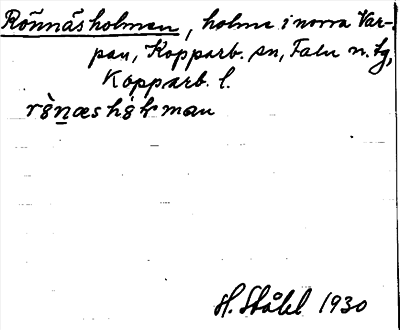 Rönnäsholmen, holme i norra Var-
pan, Kopparb. sn, Falu n. tg,
Kopparb. l.
H. Ståhl 1930